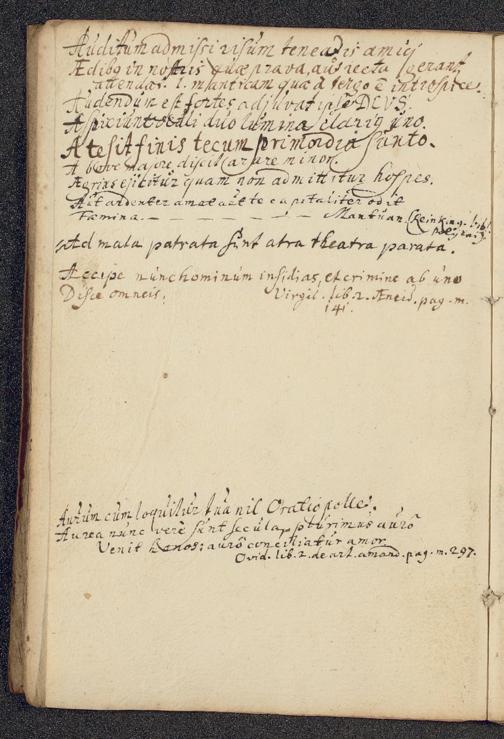 Auditum admissi risum teneatis amici
Ædibq in nostris quæ prava, aut recta gerant
attendas. l. manticam quæ à tergo ẽ introspice.
Audendum est fortes adjuvat ipse DEUS.
Aspiciunt oculi duo lumina clariq uno.
A te sit finis tecum primordia sunto.
A bove majore discit arare minor.
Aegrius ejicitur quam non admittitur hospes.
Aut ardenter amat aut te capitaliter odit
Fœmina. — — — — — Mantuan. (Reinking. l. 
Ad mala patrata sunt atra theatra parata.
Accipe nunc hominum insidias, et crimine ab uno
Disce omneis. Virgil. lib. 2. Æneid. pag. m.
141.
Aurum cum loquitur tua nil Oratio pollet.
Aurea nunc verè sunt secula, plurimus aurõ
Venit Honos: aurõ conciliatur amor
Ovid. lib. 2. de art. amand. pag. m. 297.